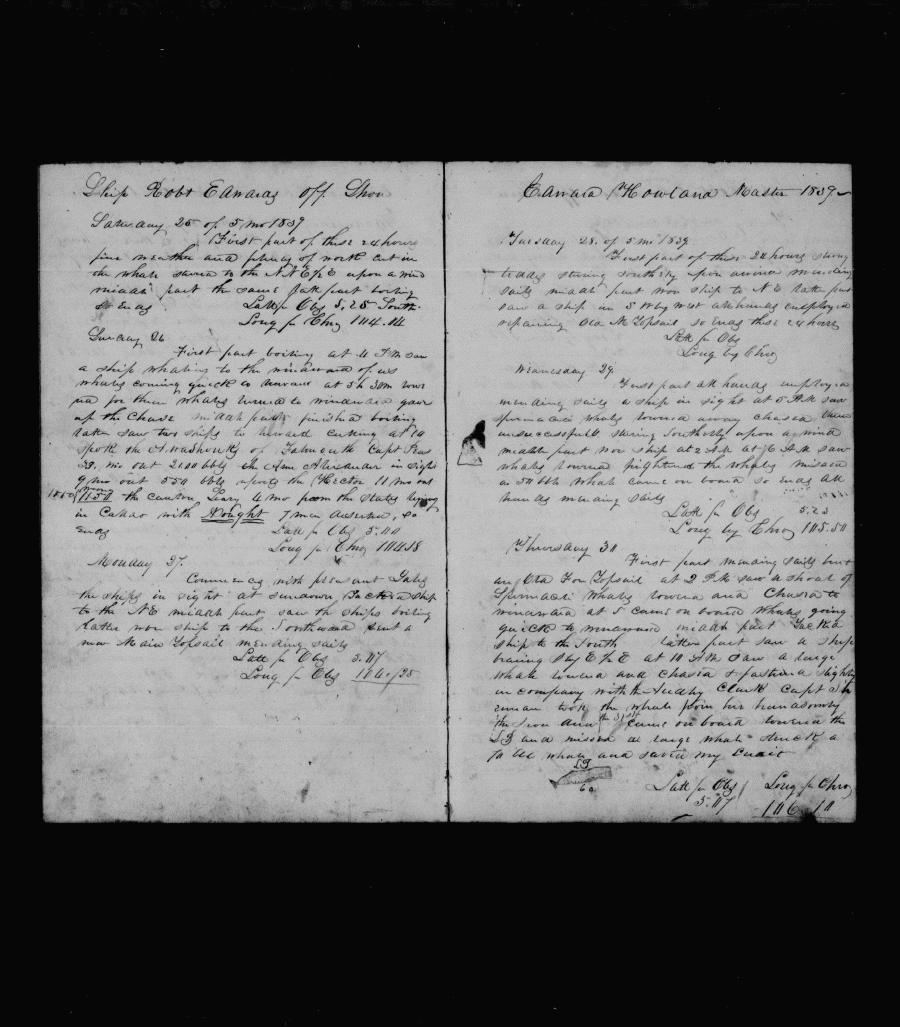 Ship Robt Edwards off Shore
Saturday 25 of 5 mo 1839
First part of these 24 hours
fine weather and plenty of work cut in
the whale steered to the N N E & E upon a wind
middle part the same Latr part boiling
so Ends Latt p Obs 5.25 South
Long p Chro 104.14
Sunday 26
First part boiling at 4 P M saw
a ship whaling to the windward of us
whales coming quick to leeward at 5 h 30m lowr
ed for them whales turned to windward gave
up the Chase middle part finished boiling
later saw two ships to leeward cuting at 10
spoke the Awashonks of Falmouth Capt
mo out 2100 bbls the Ann Alexander in sight
9 mo out 550 bbls reports the Hector 11 mo out
1150 the canton 4 mo from the States lying
in Callao with Nought 7 men deserted, so
Ends Latt p Obs 5.00
Long p Chro 104.18
Monday 27
Commences with pleasant Gales
the ships in sight at sundown Tacked ship
to the NE middle part saw the ships boiling
Latter wore ship to the Southward sent a
new Main Topsail mending sails
Latt p Obs 5.07
Long p Obs 106/35
Edward Howland Master 1839
Tuesday 28 of 5 mo 1839
First part of these 24 hours strong
trades stering southerly upon a wind mending
sails middle part wore ship to N E later part
saw a ship in S W by West all hands employed
repairing Old M Topsail so Ends these 24 hours
Latt p Obs
Long by Chro
Wednesday 29
First part all hands employed
mending sails a ship in sight at 5 P M saw
spermaceti whales lowerd away chased them
unsuccessfull stering Southerly upon a wind
middle part wore ship at 2 A M at 6 A M saw
whales lowered frightened the whales missed
a 50 bbl whale came on board so Ends All
hands mending sails
Latt p Obs 5.23
Long by Chro 105.50
Thursday 30
First part mending sails bent
an Old For Topsail at 2 P M saw a shoal of
Spermaceti Whales lowerd and Chased to
windward at 5 came on board whales going
quick to windward middle part Tacked
ship to the South latter part saw a ship
bearing S by E & E at 10 A M saw a large
whale lowered and chased & fastened slightly
in company with the Awashy Clark Capt
took the whale from her handsomly
the Iron drew the 31st came on board lowered the
LB and missed a large whale struck a
10 bbl whale and saved my Credit
LB
60
Latt p Obs Long p Chro
5.07 106.10